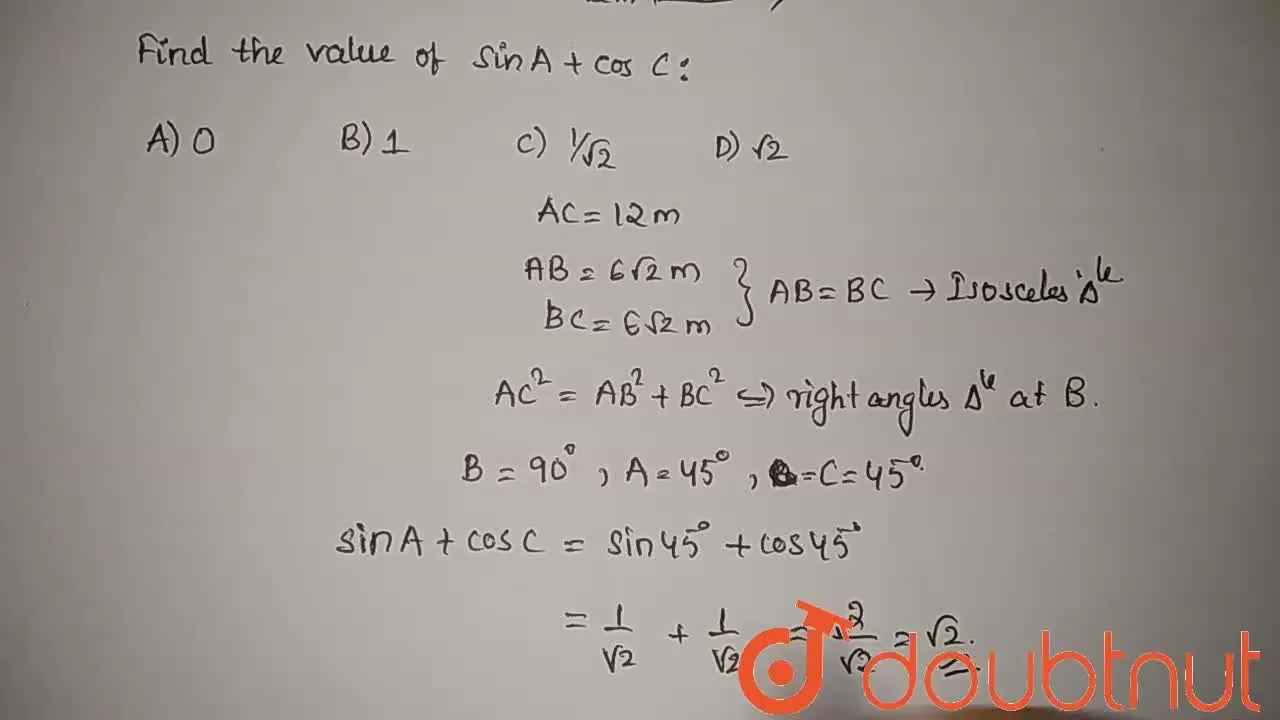 Find the value of sin A + cos C:
A) 0 B) 1 C) 1/√2 D) √2
AC = 12 m
AB = 6√2 m
BC = 6√2 m } AB = BC → Isosceles Δle
AC² = AB² + BC² ⇔ right angles Δle at B.
B = 90°, A = 45°, = C = 45°.
sin A + cos C = sin 45° + cos 45°
= 1/√2 + 1/√2 = 2/√2 = √2.
doubtnut